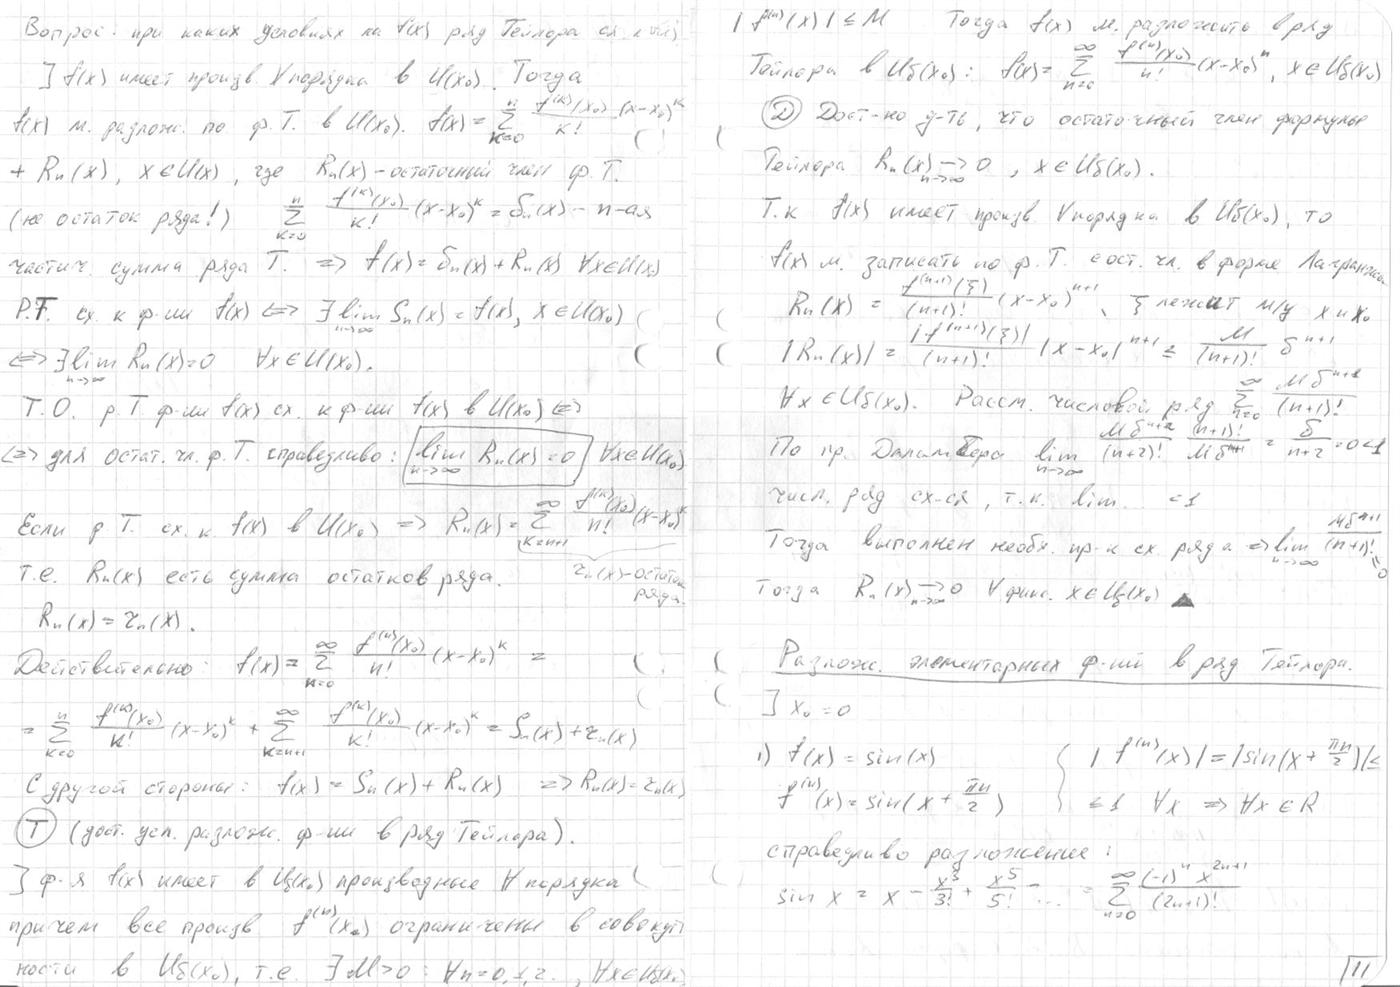 Вопрос: при каких условиях на f(x) ряд Тейлора сх. к f(x)
] f(x) имеет произв. ∀ порядка в U(x₀). Тогда
f(x) м. разлож. по ф. Т. в U(x₀). f(x) = ∑_{k=0}^{n} f^{(k)}(x₀)/k! (x-x₀)^k
+ Rₙ(x), x∈U(x), где Rₙ(x) - остаточный член ф. Т.
(не остаток ряда!) ∑_{k=0}^{n} f^{(k)}(x₀)/k! (x-x₀)^k = Sₙ(x) - n-ая
частич. сумма ряда Т. => f(x) = Sₙ(x) + Rₙ(x) ∀x∈U(x)
Р.Т. сх. к ф-ии f(x) <=> ∃ lim_{n→∞} Sₙ(x) = f(x), x∈U(x₀)
<=> ∃ lim_{n→∞} Rₙ(x)=0 ∀x∈U(x₀).
Т.О. р.Т ф-ии f(x) сх. к ф-ии f(x) в U(x₀) <=>
<=> для остат. чл. ф. Т. справедливо: lim_{n→∞} Rₙ(x)=0 ∀x∈U(x₀)
Если р. Т. сх. к. f(x) в U(x₀) => Rₙ(x) = ∑_{k=n+1}^{∞} f^{(k)}(x₀)/n! (x-x₀)^k
т.е. Rₙ(x) есть сумма остатков ряда. rₙ(x)-остаток ряда.
Rₙ(x) = rₙ(x).
Действительно: f(x) = ∑_{n=0}^{∞} f^{(n)}(x₀)/n! (x-x₀)^k =
= ∑_{k=0}^{n} f^{(k)}(x₀)/k! (x-x₀)^k + ∑_{k=n+1}^{∞} f^{(k)}(x₀)/k! (x-x₀)^k = Sₙ(x) + rₙ(x)
С другой стороны: f(x) = Sₙ(x) + Rₙ(x) => Rₙ(x) = rₙ(x)
Т (дост. усл. разлож. ф-ии в ряд Тейлора).
] ф-я f(x) имеет в U_δ(x₀) производные ∀ порядка
причем все произв f^{(n)}(x₀) ограничены в совокуп
ности в U_δ(x₀), т.е. ∃ M>0 : ∀n=0,1,2., ∀x∈U_δ(x₀)
|f^{(n)}(x)| ≤ M Тогда f(x) м. разложить в ряд
Тейлора в U_δ(x₀): f(x) = ∑_{n=0}^{∞} f^{(n)}(x₀)/n! (x-x₀)^n, x∈U_δ(x₀)
Д Дост-но д-ть, что остаточный член формулы
Тейлора Rₙ(x) →_{n→∞} 0, x∈U_δ(x₀).
Т.к f(x) имеет произв. ∀ порядка в U_δ(x₀), то
f(x) м. записать по ф. Т. с ост. чл. в форме Лагранжа
Rₙ(x) = f^{(n+1)}(ξ)/(n+1)! (x-x₀)^{n+1}, ξ лежит м/у x и x₀
|Rₙ(x)| = |f^{(n+1)}(ξ)|/(n+1)! |x-x₀|^{n+1} ≤ M/(n+1)! δ^{n+1}
∀x∈U_δ(x₀). Рассм. числовой ряд ∑_{n=0}^{∞} Mδ^{n+1}/(n+1)!
По пр. Даламбера lim_{n→∞} Mδ^{n+2}/(n+2)! (n+1)!/Mδ^{n+1} = δ/n+2 = 0<1
числ. ряд сх-ся, т.к. lim ... <1
Тогда выполнен необх. пр-к сх. ряда => lim_{n→∞} Mδ^{n+1}/(n+1)! = 0
Тогда Rₙ(x) →_{n→∞} 0 ∀ фикс. x∈U_δ(x₀) ▲
Разлож. элементарных ф-ий в ряд Тейлора.
] x₀ = 0
1) f(x) = sin(x) { |f^{(n)}(x)| = |sin(x + πn/2)| ≤
f^{(n)}(x) = sin(x + πn/2) { ≤ 1 ∀x => ∀x∈R
справедливо разложение:
sin x = x - x³/3! + x⁵/5! - ... = ∑_{n=0}^{∞} (-1)^n x^{2n+1}/(2n+1)!
11